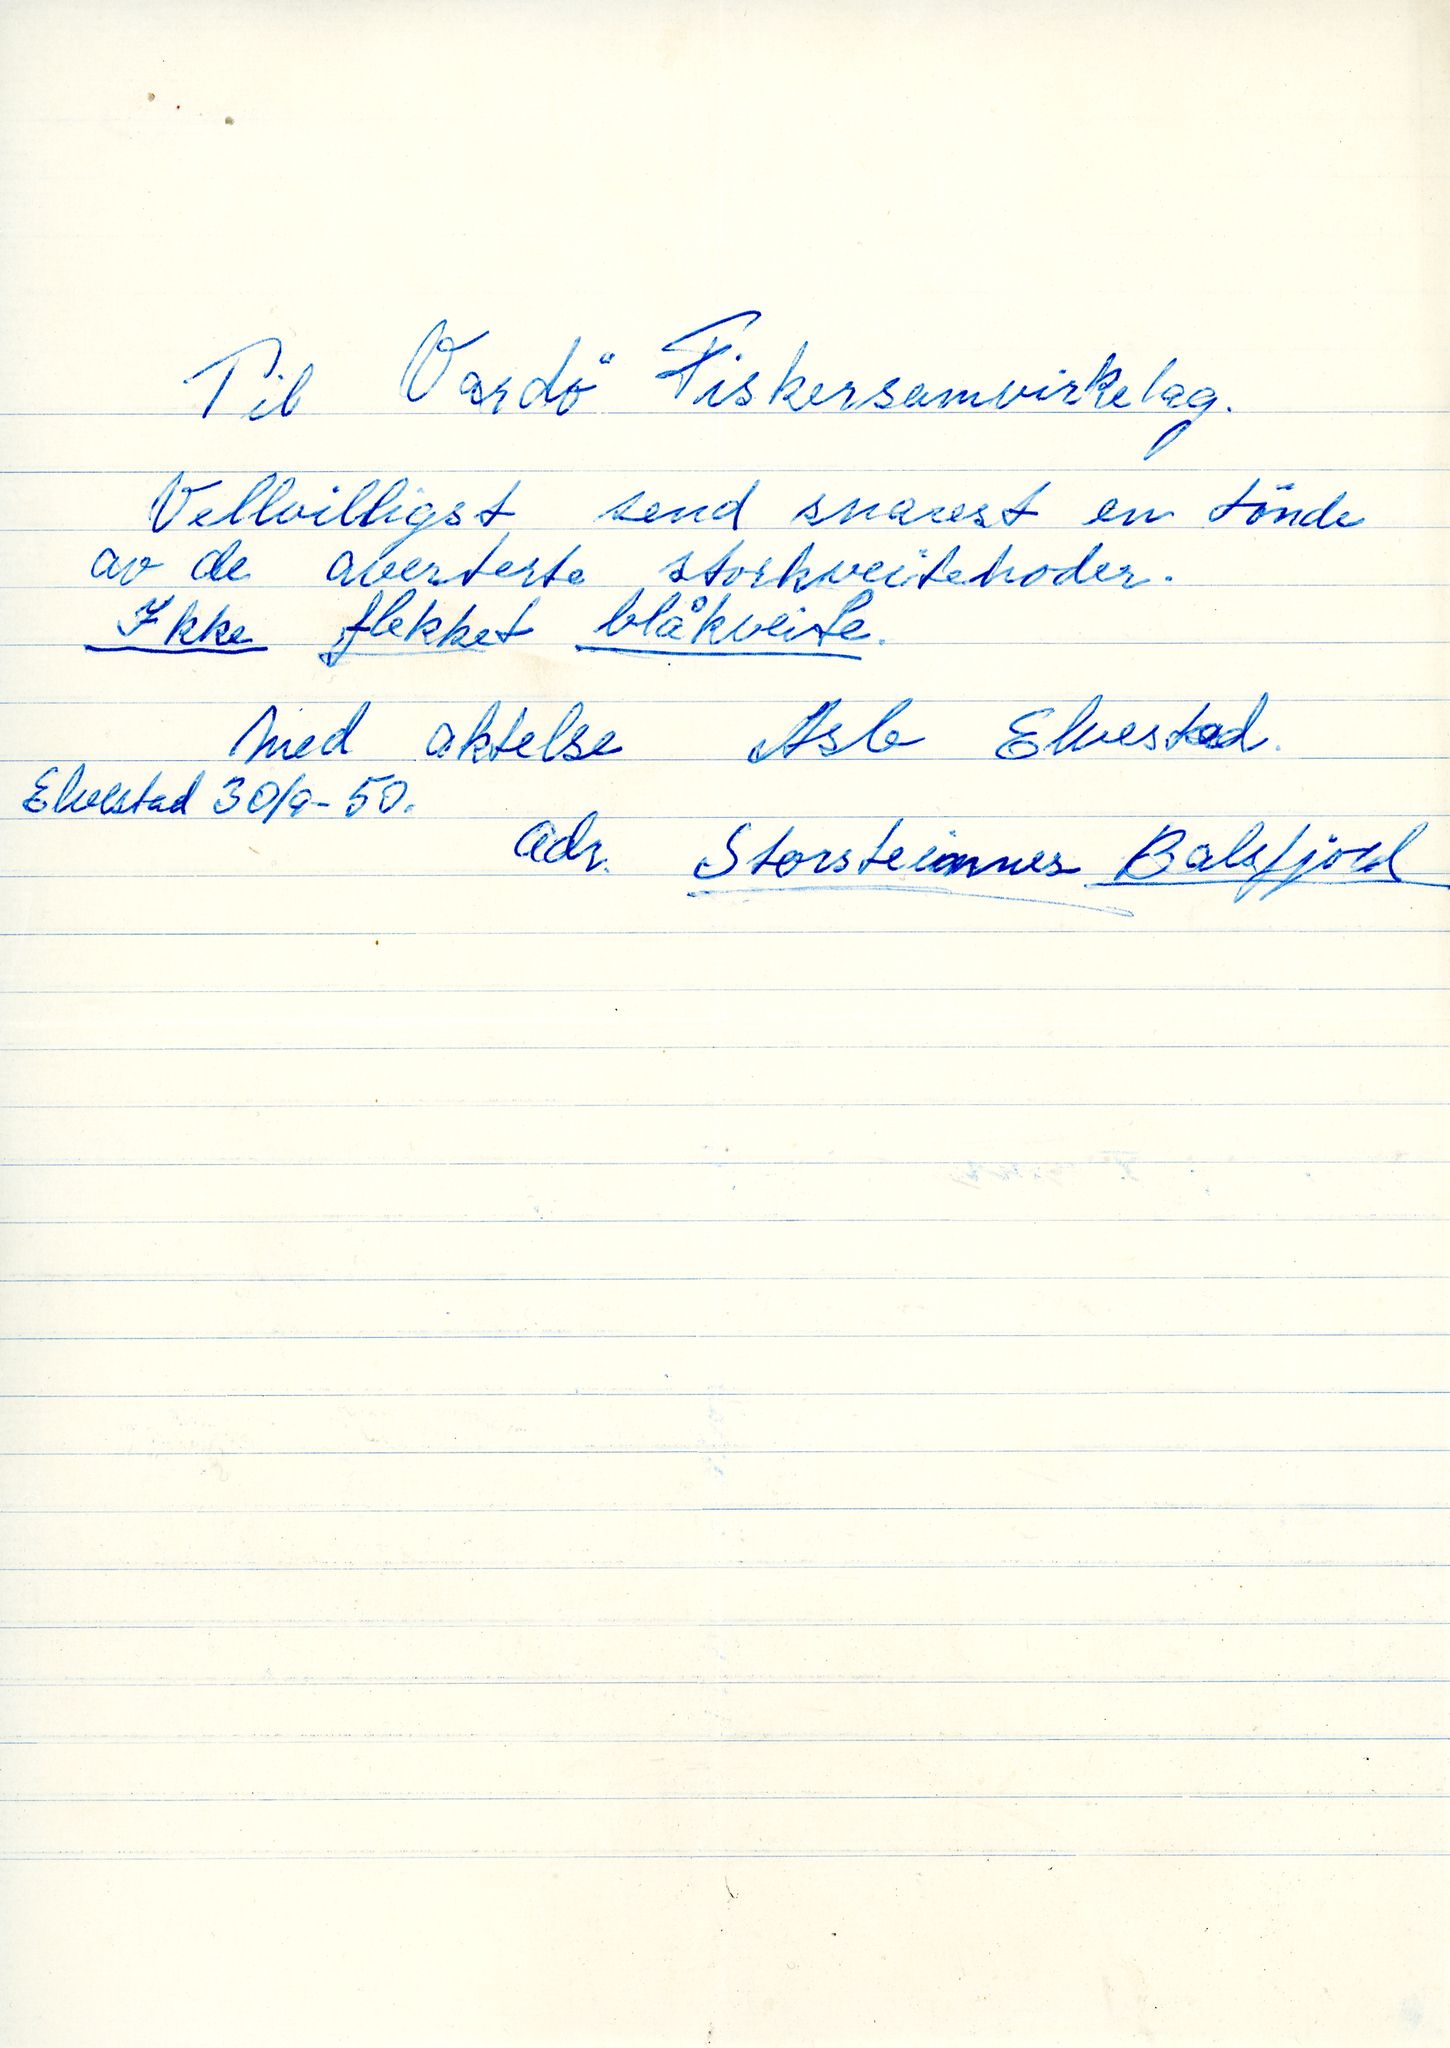 Til Vardö Fiskersamvirkelag.
Vellvilligst send snarest en tönde
av de averterte storkveitehoder.
Ikke flekket blåkveite.
Med aktelse Asb Elvestad.
Elvestad 30/9-50.
adr. Storsteinnes Balsfjord